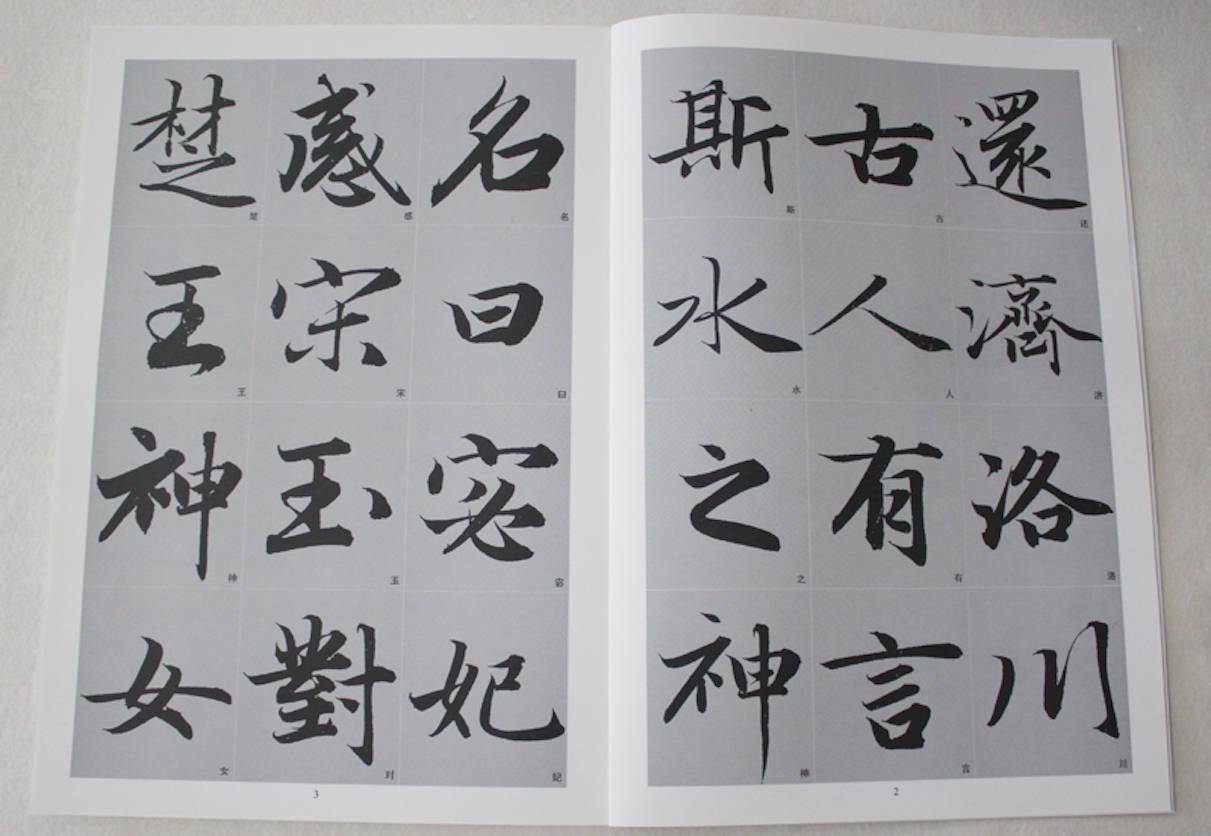 還濟洛川
还济洛川
古人有言
古人有言
斯水之神
斯水之神
2
名曰宓妃
名曰宓妃
感宋玉對
感宋玉对
楚王神女
楚王神女
3